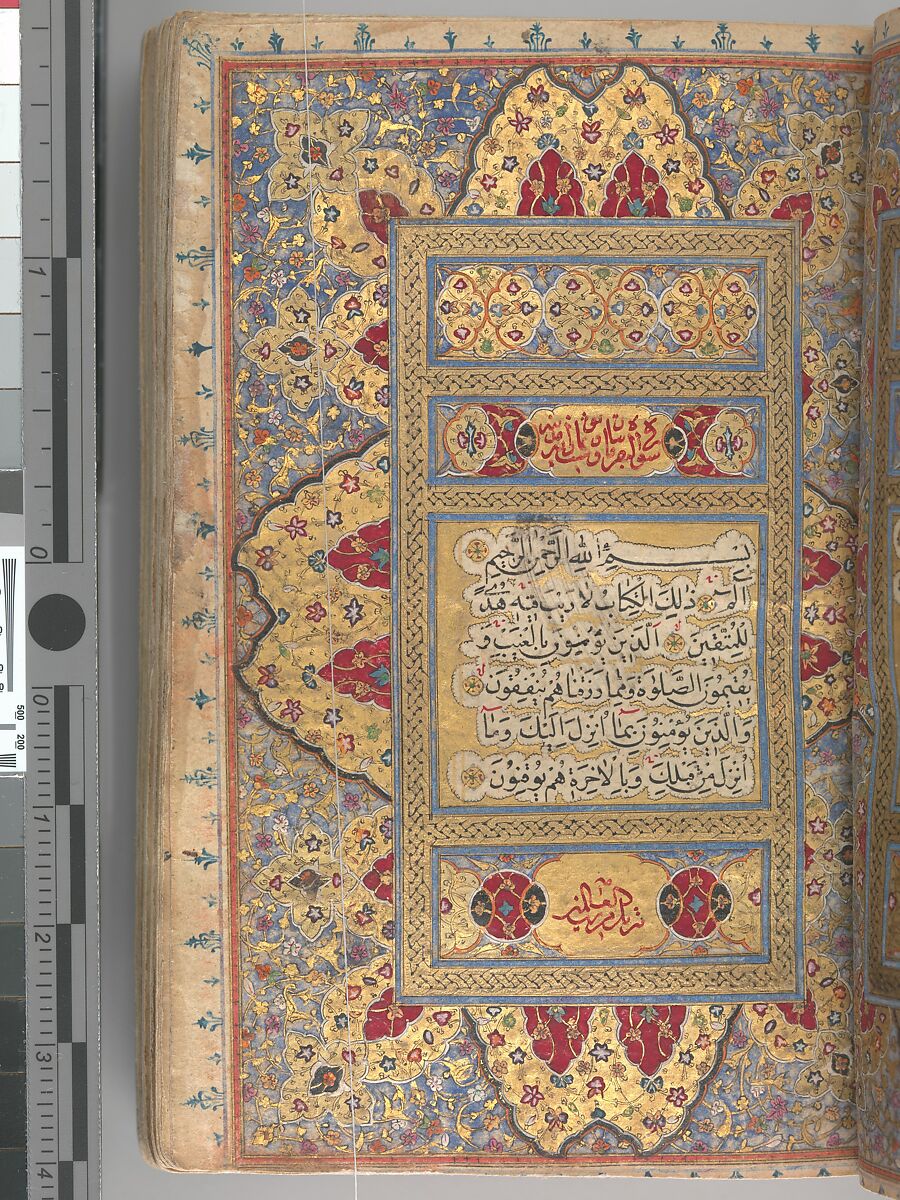 سورة البقرة
بِسْمِ اللهِ الرَّحْمٰنِ الرَّحِيمِ
الٓمٓ ذٰلِكَ الْكِتَابُ لَا رَيْبَ فِيهِ هُدًى
لِلْمُتَّقِينَ الَّذِينَ يُؤْمِنُونَ بِالْغَيْبِ وَ
يُقِيمُونَ الصَّلٰوةَ وَمِمَّا رَزَقْنَاهُمْ يُنْفِقُونَ
وَالَّذِينَ يُؤْمِنُونَ بِمَا اُنْزِلَ اِلَيْكَ وَمَا
اُنْزِلَ مِنْ قَبْلِكَ وَبِالْاٰخِرَةِ هُمْ يُوقِنُونَ
تنزيل من رب العالمين
1
0
0
1
2
3
4
500
200